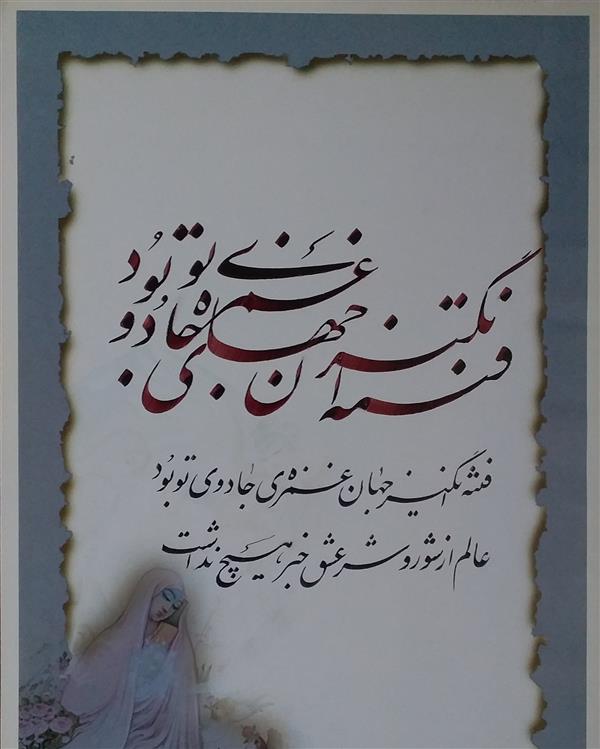 فتنه انگیز جهان غمزه ی جادوی تو بُود
فتنه انگیز جهان غمزه ی جادوی تو بُود
عالم از شور و شر عشق خبر هیچ نداشت